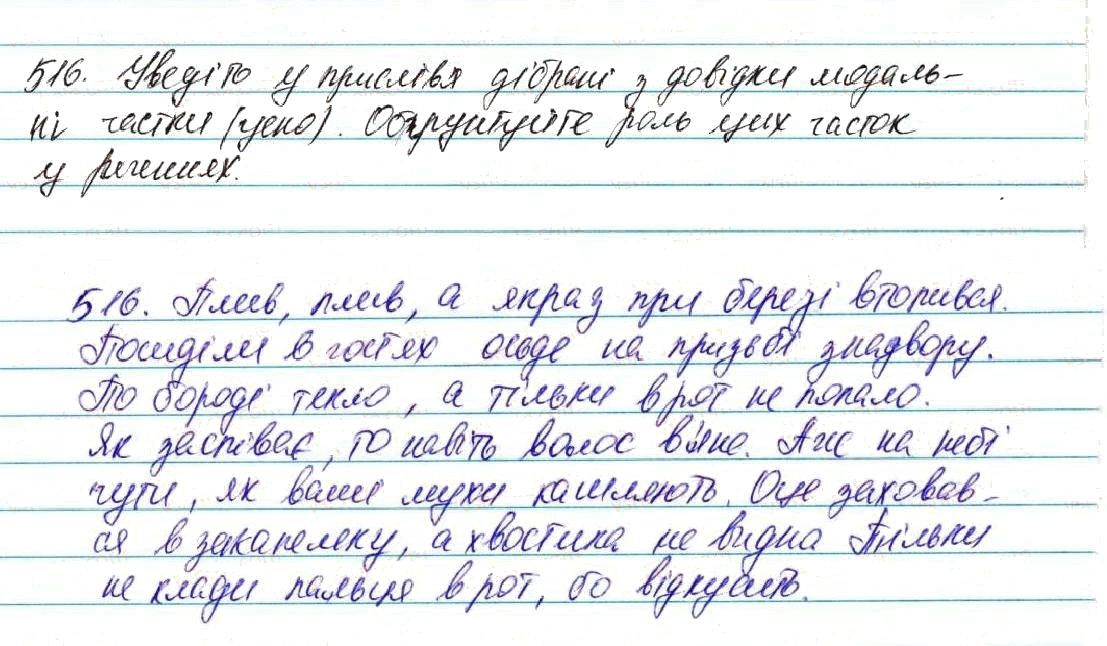 516. Уведіть у прислівя дібрані з довідки модаль-
ні частки (усно). Обґрунтуйте роль цих часток
у реченнях.
516. Плив, плив, а якраз при березі втопився.
Посиділи в гостях осьде на призьбі знадвору.
По бороді текло, а тільки в рот не попало.
Як заспіває, то навіть волос вяне. Аж на небі
чути, як ваші мухи кашляють. Оце заховав-
ся в закапелку, а хвостика не видна Тільки
не клади пальця в рот, бо відкусить.